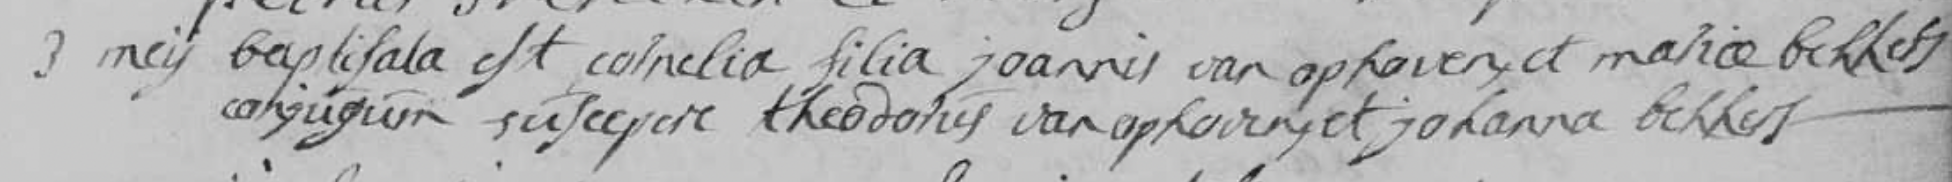 3 meij baptisata est cornelia filia joannis van ophoven et mariæ bekkers
conjugum suscepere theodorus van ophoven et johanna bekkers